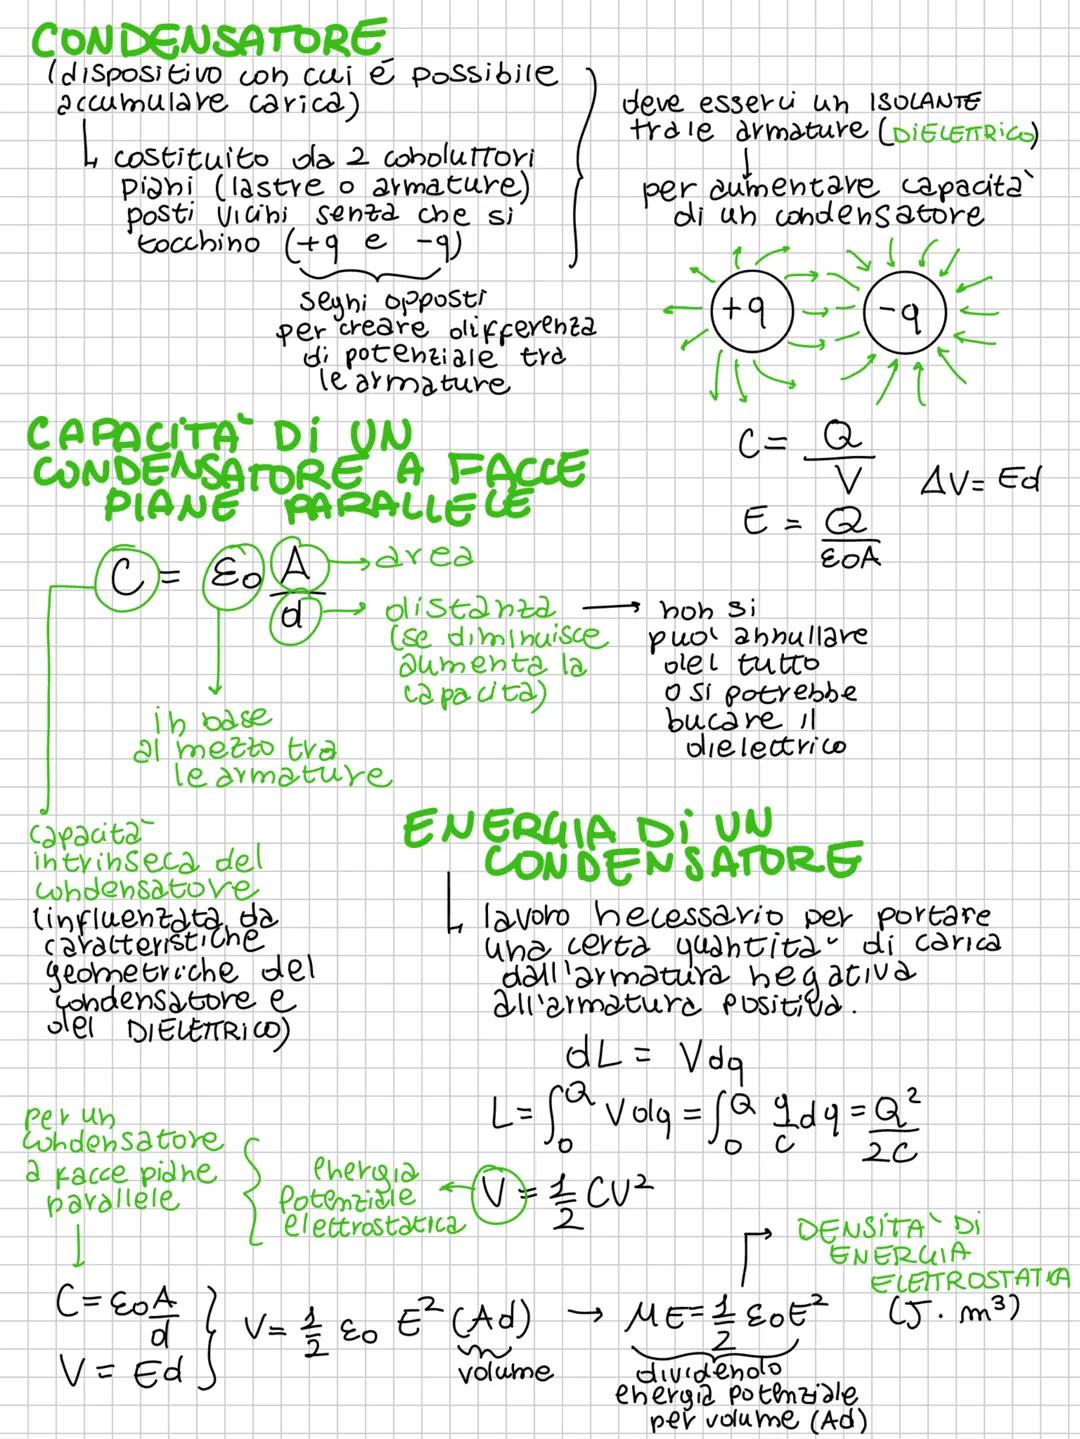 CONDENSATORE
(dispositivo con cui é possibile
accumulare carica)
↳ costituito da 2 conduttori
piani (lastre o armature)
posti vicini senza che si
tocchino (+q e -q)
segni opposti
per creare differenza
di potenziale tra
le armature
deve esserci un ISOLANTE
tra le armature (DIELETTRICO)
↓
per aumentare capacità
di un condensatore
+q
-q
C = Q/V
ΔV = Ed
E = Q/ε0A
CAPACITÀ DI UN
CONDENSATORE A FACCE
PIANE PARALLELE
C = ε0 A/d
→ area
→ distanza
(se diminuisce
aumenta la
capacita)
→ non si
puo' annullare
del tutto
o si potrebbe
bucare il
dielettrico
in base
al mezzo tra
le armature
capacità
intrinseca del
condensatore
(influenzata da
caratteristiche
geometriche del
condensatore e
del DIELETTRICO)
ENERGIA DI UN
CONDENSATORE
↳ lavoro necessario per portare
una certa quantità di carica
dall'armatura negativa
all'armatura positiva.
dL = Vdq
L = ∫₀^Q Vdq = ∫₀^Q q/c dq = Q²/2C
V = 1/2 CV²
energia
potenziale
elettrostatica
per un
condensatore
a facce piane
parallele
↓
C = ε0A/d
V = Ed
V = 1/2 ε0 E² (Ad)
volume
→ μE = 1/2 ε0E²
dividendo
energia potenziale
per volume (Ad)
DENSITÀ DI
ENERGIA
ELETTROSTATICA
(J · m³)